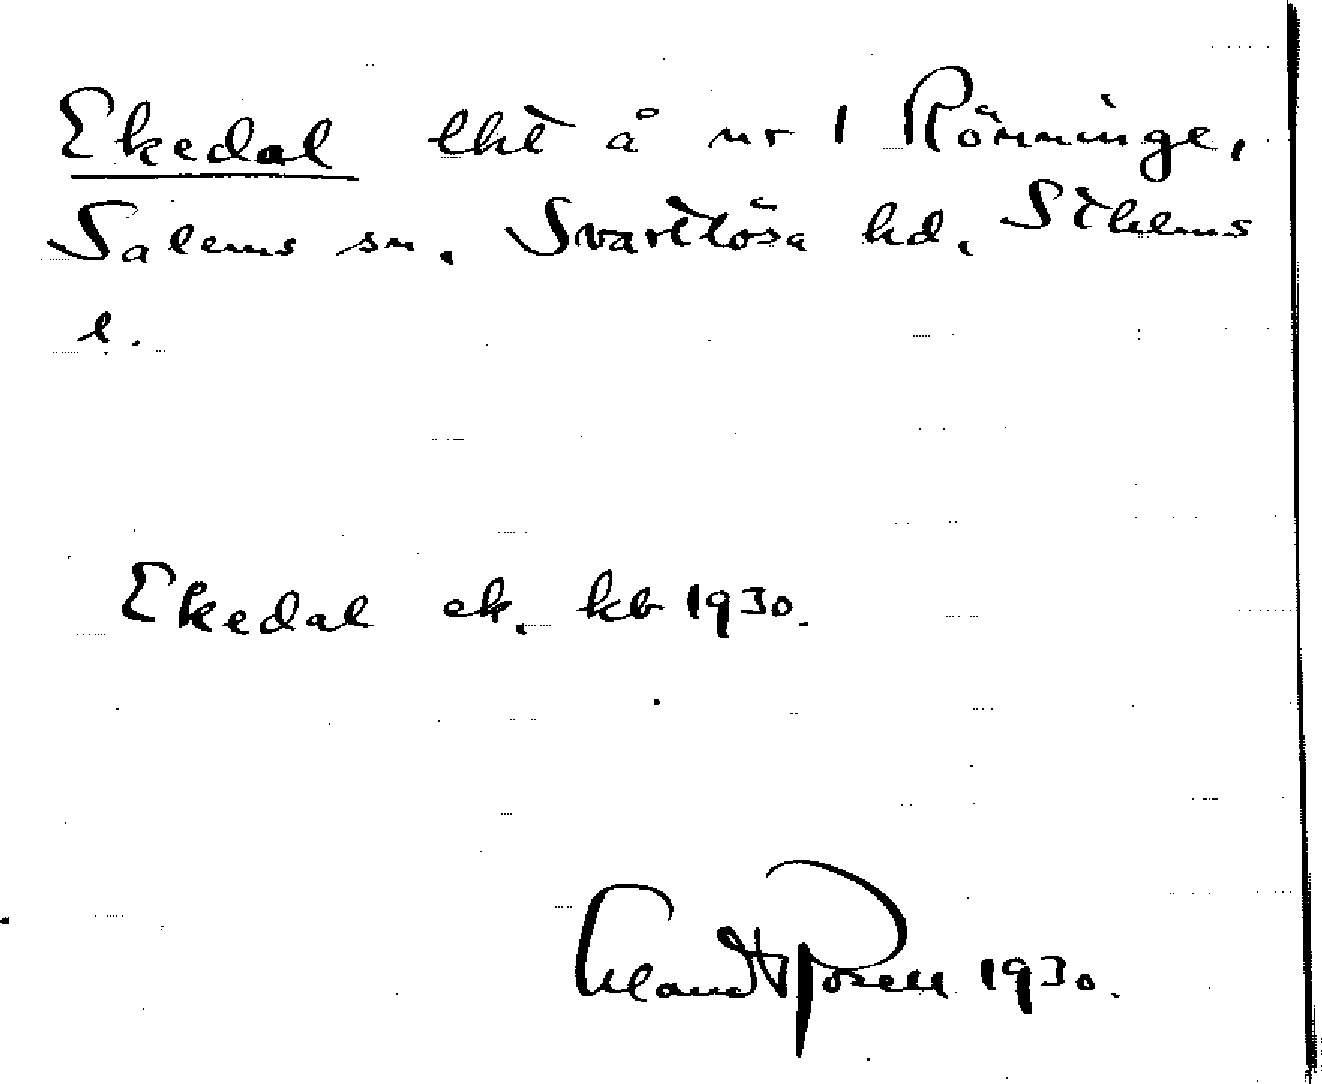 Ekedal lht å nr 1 Rönninge,
Salems sn. Svartlösa hd. Sthlms
l.
Ekedal ek. kb 1930.
Rosell 1930.